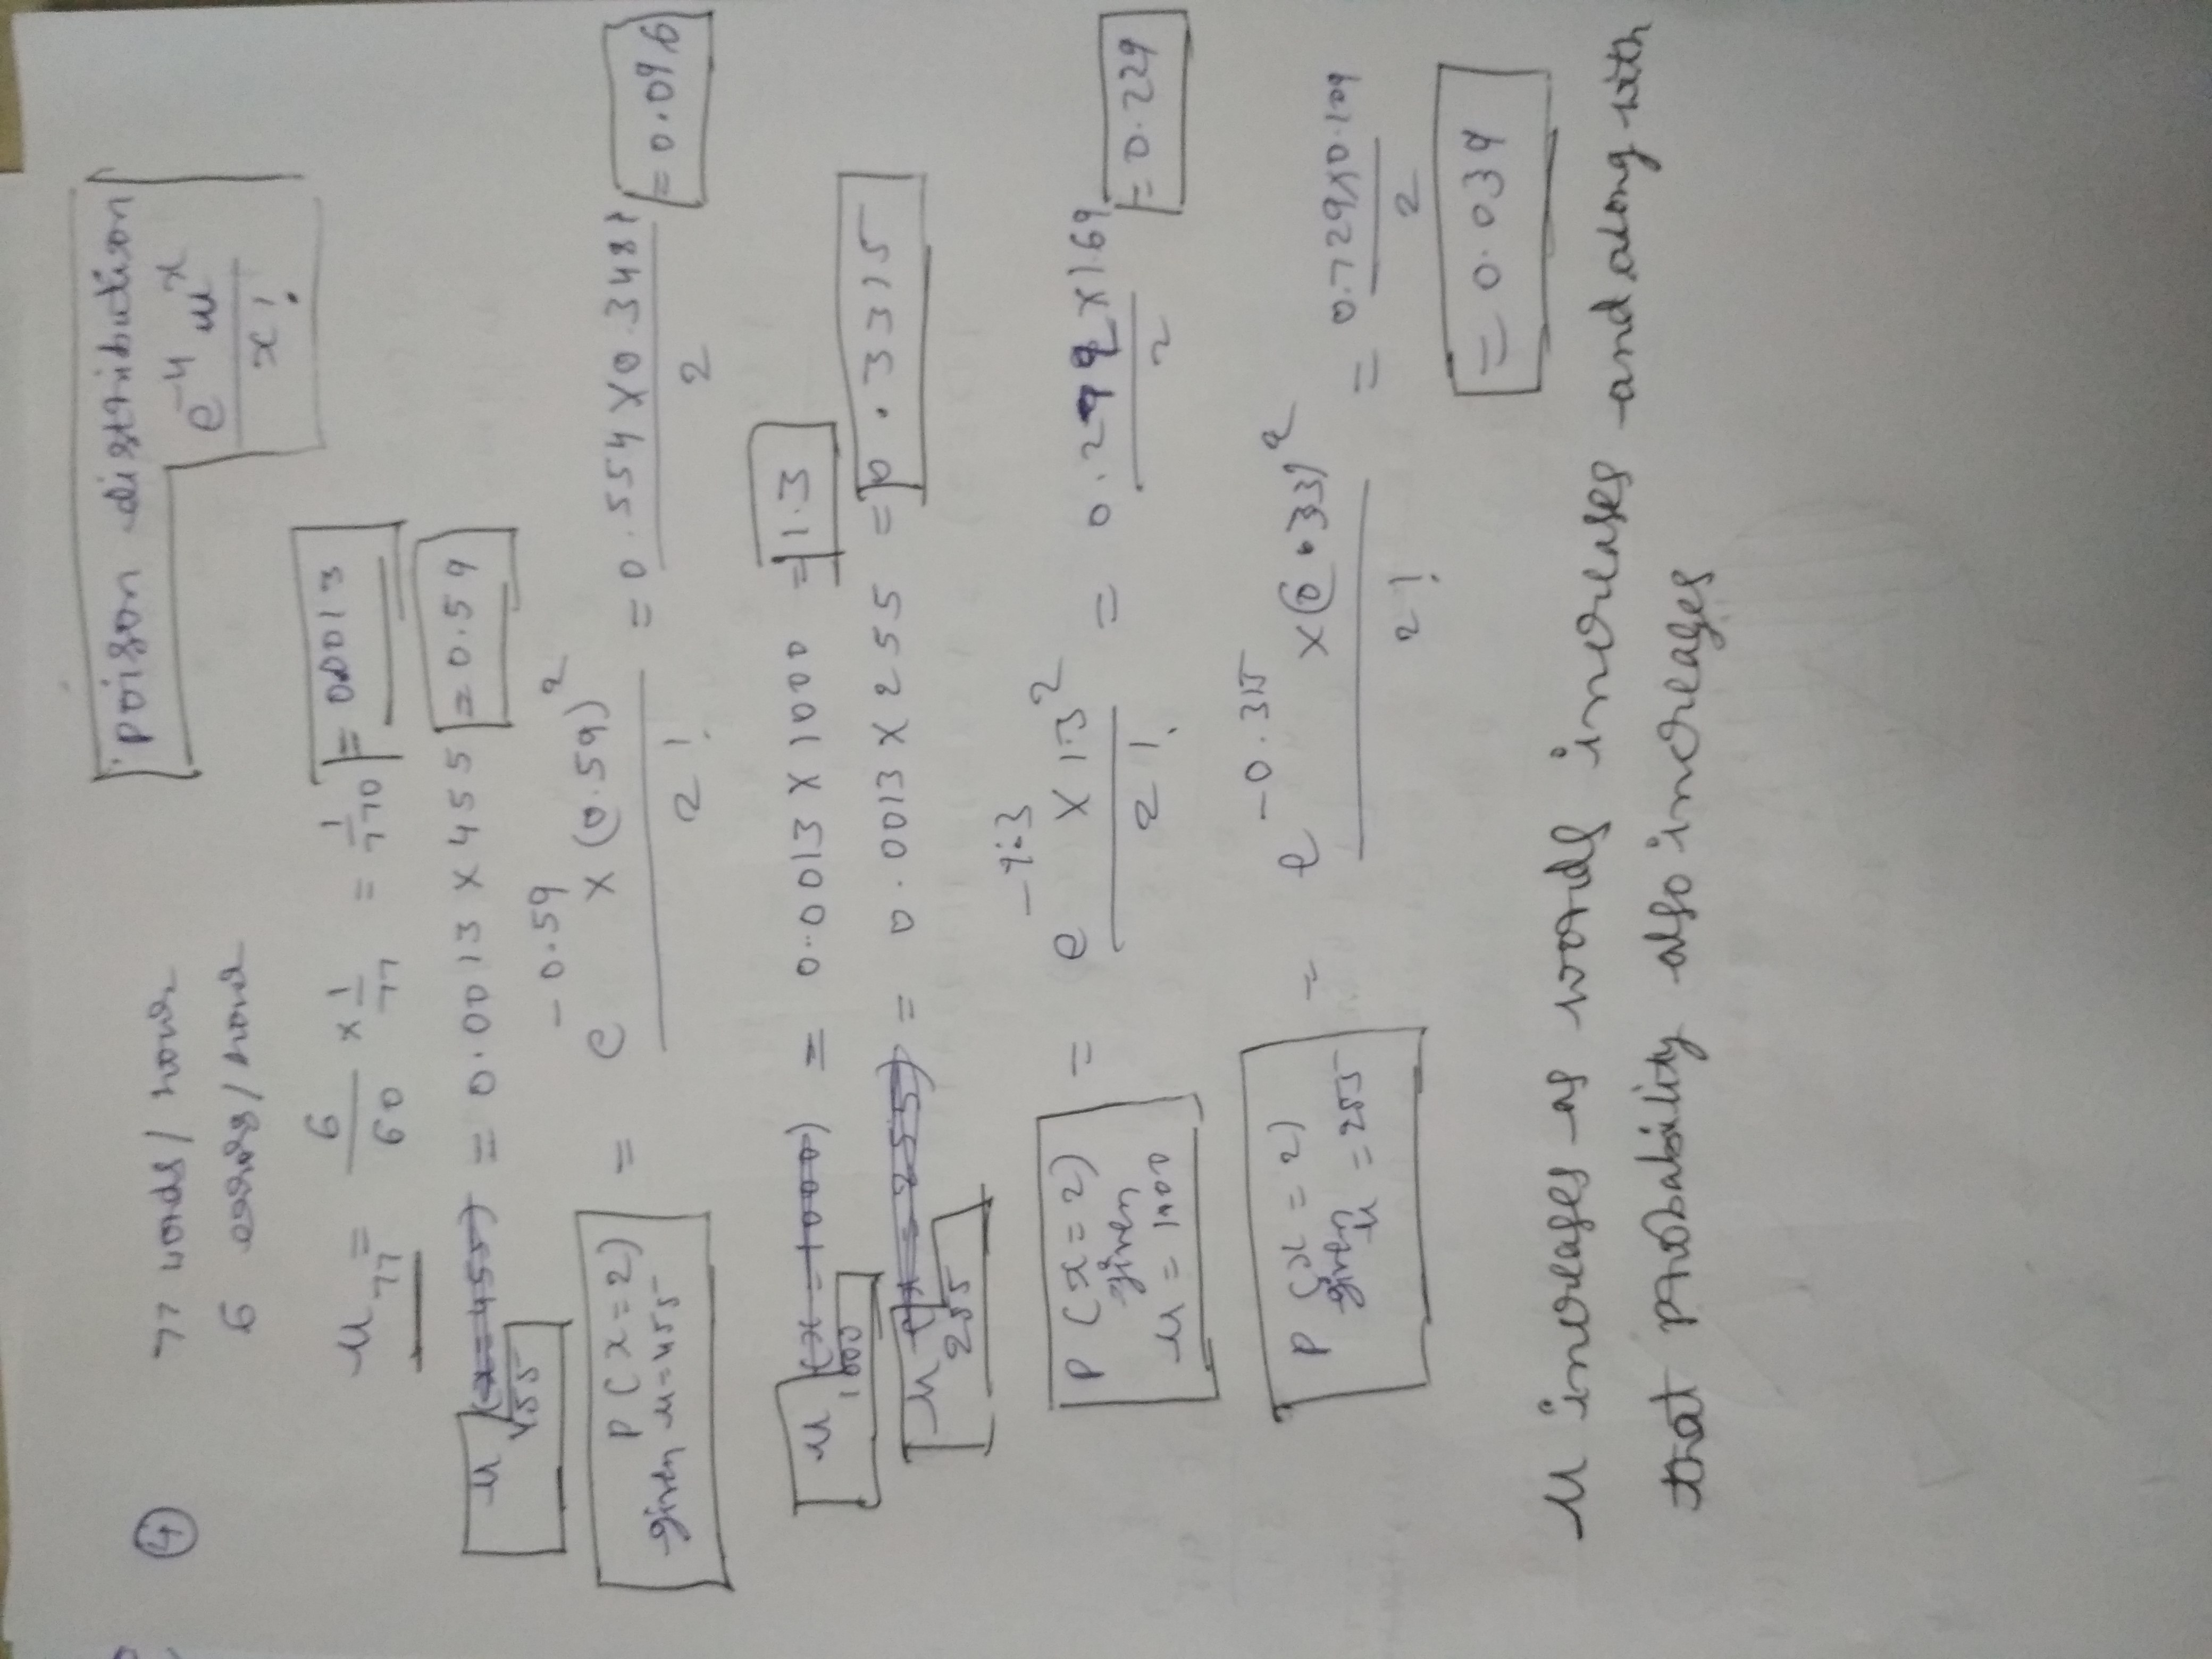 poison distribution
④ 77 words / hour
e^-μ μ^x / x!
6 errors / hour
μ 77 = 6/60 × 1/77 = 1/770 = 0.0013
μ 455 = 0.0013 × 455 = 0.59
P(x=2) given μ=455 = e^-0.59 × (0.59)^2 / 2! = 0.554 × 0.3481 / 2 = 0.096
μ 1000 = 0.0013 × 1000 = 1.3
μ 255 = 0.0013 × 255 = 0.3315
P(x=2) given μ = 1000 = e^-1.3 × 1.3^2 / 2! = 0.272 × 1.69 / 2 = 0.229
P(x=2) given μ = 255 = e^-0.315 × (0.33)^2 / 2! = 0.729 × 0.109 / 2
= 0.039
μ increases as words increases and along with
that probability also increases